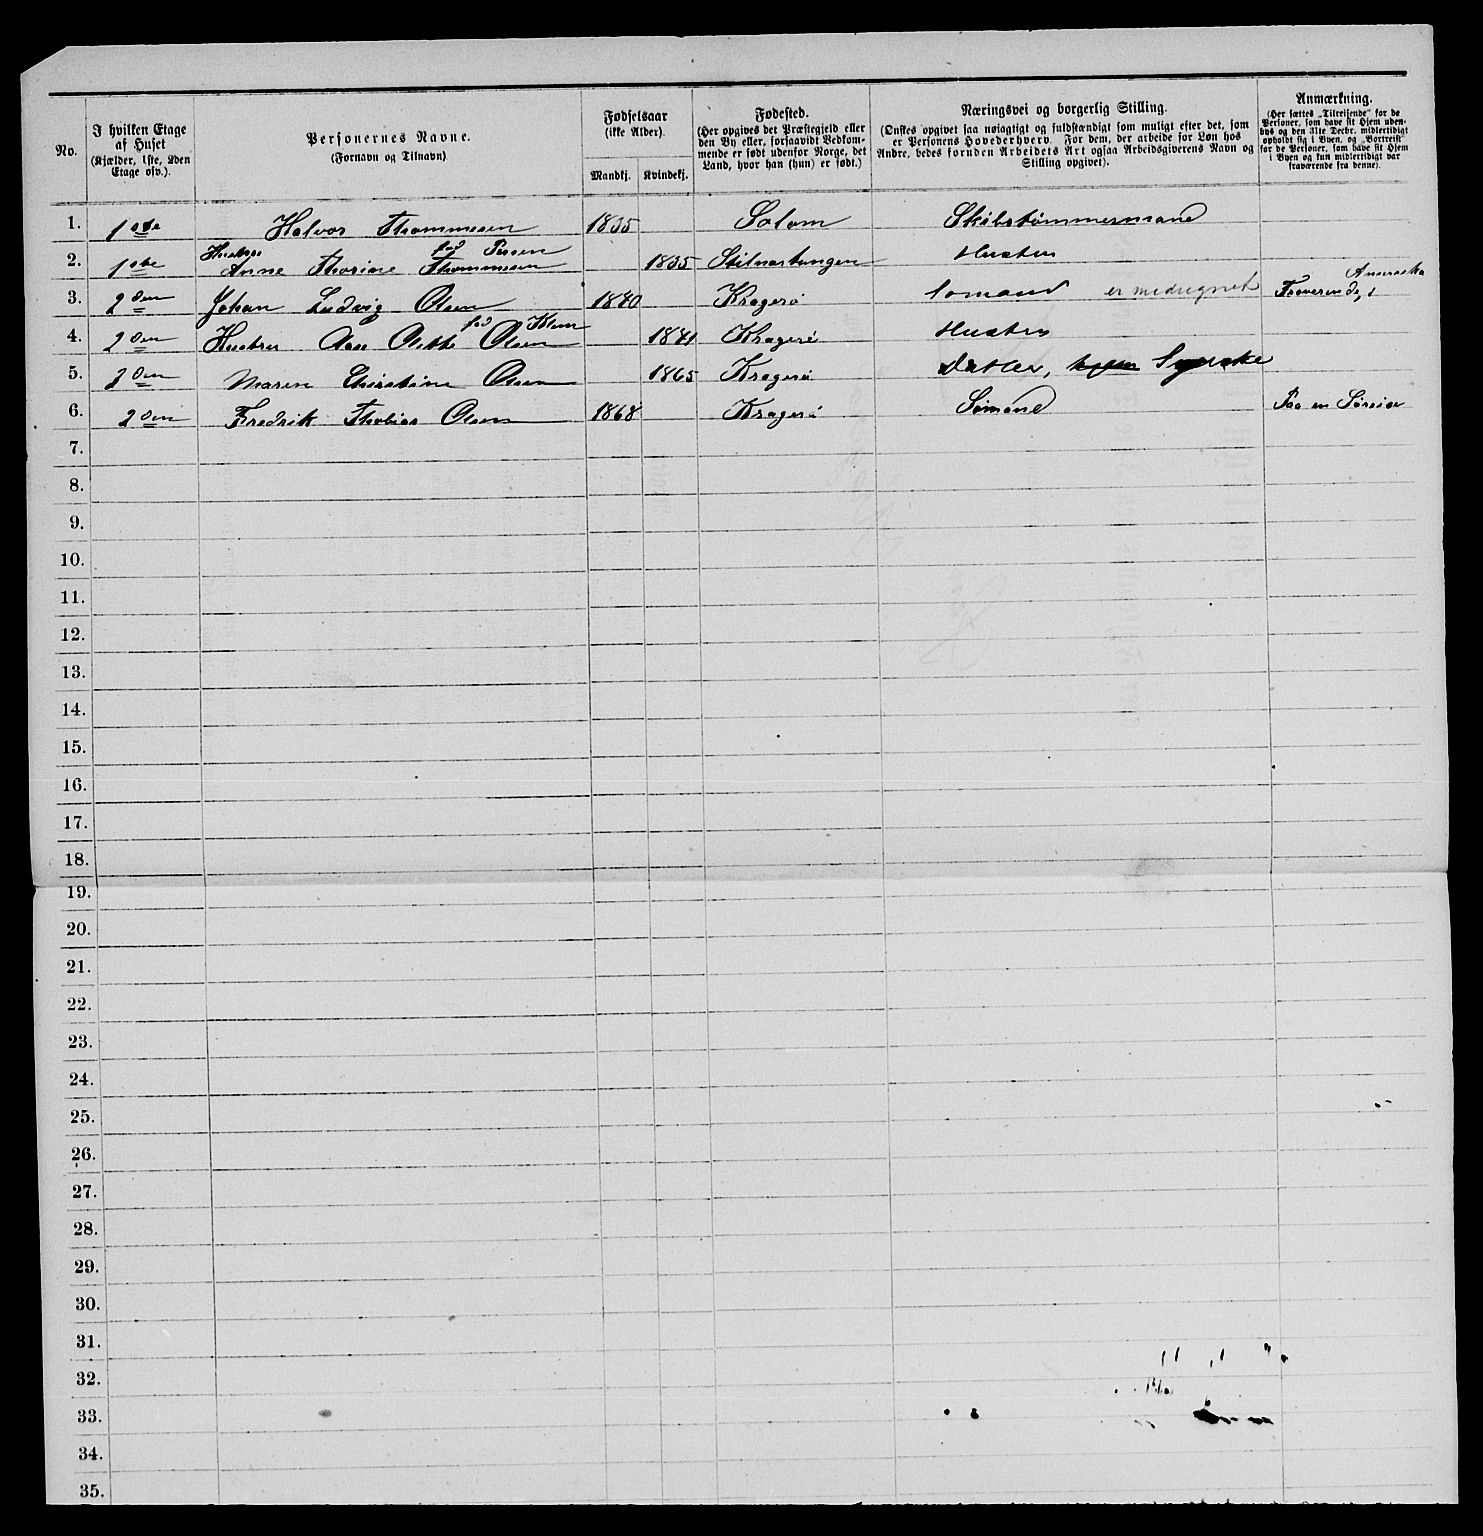 No.
I hvilken Etage
af Huset
(Kjælder, 1ste, 2den
Etage osv.).
Personernes Navne.
(Fornavn og Tilnavn)
Fødselsaar
(ikke Alder).
Mandkj.
Kvindekj.
Fødested.
(Her opgives det Præstegjeld eller
den By eller, forsaavidt Vedkom-
mende er født udenfor Norge, det
Land, hvor han (hun) er født.)
Næringsvei og borgerlig Stilling.
(Ønskes opgivet saa nøiagtigt og fuldstændigt som muligt efter det, som
er Personens Hovederhverv. For dem, der arbeide for Løn hos
Andre, bedes foruden Arbeidets Art ogsaa Arbeidsgiverens Navn og
Stilling opgivet).
Anmærkning.
(Her sættes „Tilreisende" for de
Personer, som have sit Hjem uden-
bys og den 31te Decbr. midlertidigt
opholdt sig i Byen, og „Bortreist"
for de Personer, som have sit Hjem
i Byen og kun midlertidigt var
fraværende fra denne).
1. 1ste Halvor Thommesen 1835 Solom Skibstømmermand
Hustru fød
2. 1ste Anne Thorine Thommesen 1835 Hustru
3. 2den Johan Ludvig Olsen 1840 Kragerø Sømand er medregnet
fød
4. 2den Hustru Olsen 1841 Kragerø Hustru
5. 2den Maren Christine Olsen 1865 Kragerø Datter, Syerske
6. 2den Fredrik Thobias Olsen 1868 Kragerø Sømand Paa en Søreise
7.
8.
9.
10.
11.
12.
13.
14.
15.
16.
17.
18.
19.
20.
21.
22.
23.
24.
25.
26.
27.
28.
29.
30.
31.
32.
33.
34.
35.